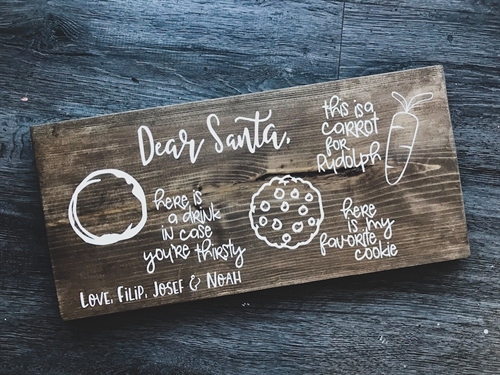 Dear Santa,
this is a
carrot
for
Rudolph
here is
a drink
in case
you're thirsty
here
is my
favorite
cookie
Love, Filip, Josef & Noah